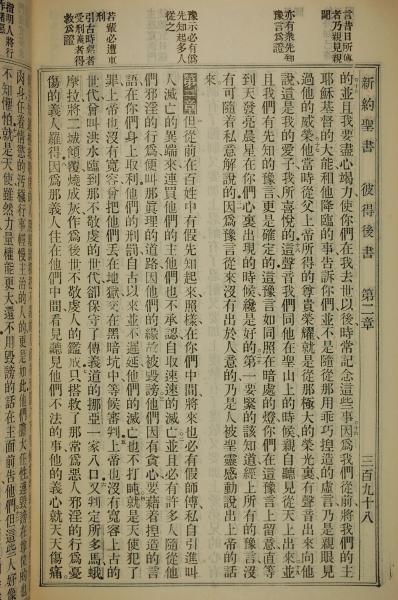 新約聖書　彼得後書　第二章　三百九十八
的並且我要盡心竭力使你們在我去世以後時常記念這些事因為我們從前將我們的主
耶穌基督的大能和他降臨的事告訴你們並不是隨從那用乖巧捏造的虛言乃是親眼見
過他的威榮他當時從父上帝所得的尊貴榮耀就是從那極大的榮光裏有聲音出來向他
說這是我的愛子我所喜悅的這聲音我們同他在聖山上的時候親自聽見從天上出來的
且我們有先知的豫言更是確定的這豫言如同照在暗處的燈你們在這豫言上留意直等
到天發亮晨星在你們心裏出現的時候纔是好的第一要緊的該知道經上所有的豫言沒
有可隨着私意解說的因為豫言從來沒有出於人意的乃是人被聖靈感動說出上帝的話
來
第二章但從前在百姓中有假先知起來照樣在你們中間將來也必有假師傅私自引進叫
人滅亡的異端來連買他們的主他們也不承認自取速速的滅亡並且必有許多人隨從他
們邪淫的行為便叫那真理的道路因他們的緣故被毀謗他們因有貪心要藉着捏造的言
語在你們身上取利他們的刑罰自古以來並不遲延他們的滅亡也不打盹就是天使犯了
罪上帝也沒有寬容曾把他們丟在地獄交在黑暗坑中等候審判上帝也沒有寬容上古的
世代曾叫洪水臨到那不敬虔的世代卻保守了傳義道的挪亞一家八口又判定所多馬蛾
摩拉將二城傾覆燒成灰作為後世不敬虔人的鑑戒只搭救了那常為惡人邪淫的行為憂
傷的義人羅得因為那義人住在他們中間看見聽見他們不法的事他的義心就天天傷痛
言昔日所傳
者乃親見親
聞
亦有衆先知
豫言為證
豫示必有假
先知起多人
從之
若輩必遭重
刑
引古時惡者
受刑義者得
救為證